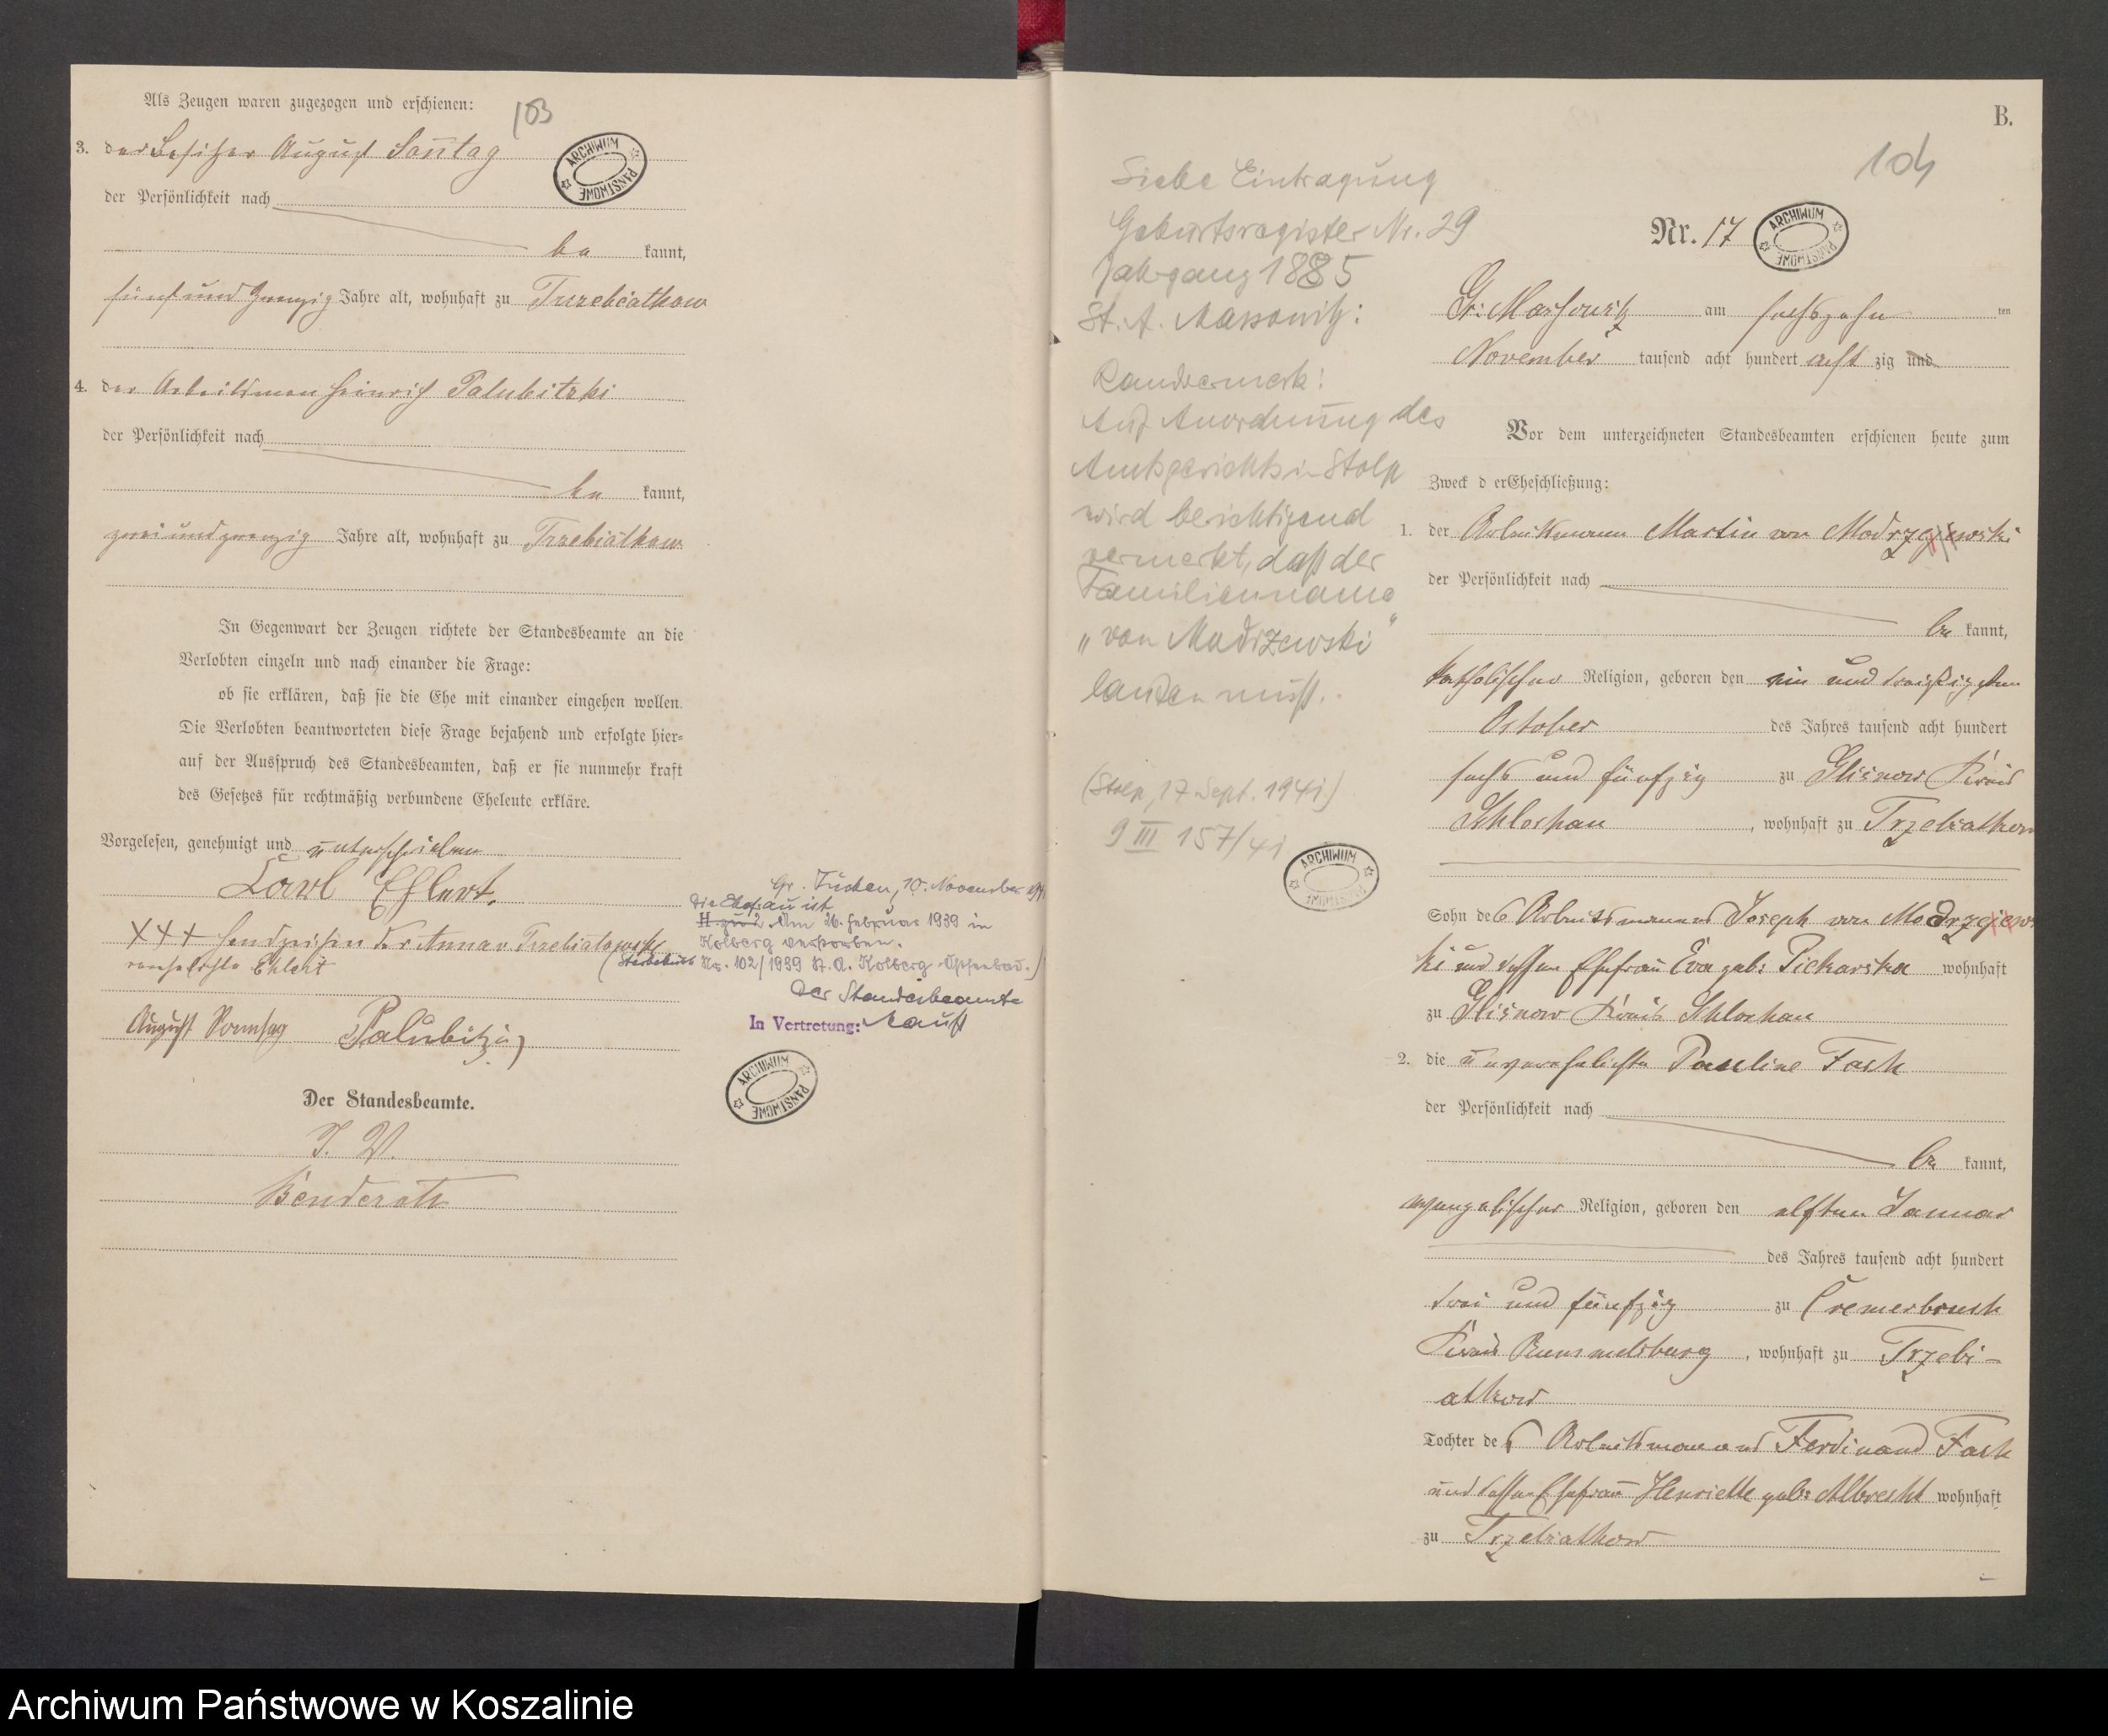 Als Zeugen waren zugezogen und erschienen:
103
3. der Besitzer August Sonntag
ARCHIWUM PAŃSTWOWE
der Persönlichkeit nach
be kannt,
fünf und zwanzig Jahre alt, wohnhaft zu Trzebiatkow
4. der Arbeitsmann Heinrich Palubitzki
der Persönlichkeit nach
be kannt,
zwei und zwanzig Jahre alt, wohnhaft zu Trzebiatkow
In Gegenwart der Zeugen richtete der Standesbeamte an die
Verlobten einzeln und nach einander die Frage:
ob sie erklären, daß sie die Ehe mit einander eingehen wollen.
Die Verlobten beantworteten diese Frage bejahend und erfolgte hier=
auf der Ausspruch des Standesbeamten, daß er sie nunmehr kraft
des Gesetzes für rechtmäßig verbundene Eheleute erkläre.
Vorgelesen, genehmigt und unterschrieben
Carl Ehlert.
XXX Handzeichen der Anna v. Trzebiatowski
verehelichte Ehlert
August Sonntag Palubitzki
Der Standesbeamte.
J. V.
Benderoth
Gr. Tuchen, 10. November 1941
Die Ehefrau ist
am 26. Februar 1939 in
Kolberg verstorben.
(Sterbebuch Nr. 102/1939 St. A. Kolberg)
Der Standesbeamte
In Vertretung:
ARCHIWUM PAŃSTWOWE
B.
104
Siehe Eintragung
Geburtsregister Nr. 29
Jahrgang 1885
St. A. Massowitz:
Randvermerk:
Auf Anordnung des
Amtsgerichts in Stolp
wird berichtigend
vermerkt, daß der
Familienname
„von Modrzewski"
lauten muß.
(Stolp, 17 Sept. 1941)
9 III 157/41
ARCHIWUM PAŃSTWOWE
Nr. 17
ARCHIWUM PAŃSTWOWE
Gr: Massowitz am sechszehn ten
November tausend acht hundert acht zig und
Vor dem unterzeichneten Standesbeamten erschienen heute zum
Zweck d er Eheschließung:
1. der Arbeitsmann Martin von Modrzejewski
der Persönlichkeit nach
be kannt,
katholischer Religion, geboren den ein und dreißigsten
October des Jahres tausend acht hundert
sechs und fünfzig zu Glisnow Kreis
Schlochau, wohnhaft zu Trzebiatkow
Sohn des Arbeitsmanns Joseph von Modrzejews
ki und dessen Ehefrau Eva geb: Piekarska wohnhaft
zu Glisnow Kreis Schlochau
2. die unverehelichte Pauline Fask
der Persönlichkeit nach
be kannt,
evangelischer Religion, geboren den elften Januar
des Jahres tausend acht hundert
drei und fünfzig zu Cremerbruch
Kreis Rummelsburg, wohnhaft zu Trzebi-
atkow
Tochter des Arbeitsmanns Ferdinand Fask
und dessen Ehefrau Henriette geb: Albrecht wohnhaft
zu Trzebiatkow
Archiwum Państwowe w Koszalinie